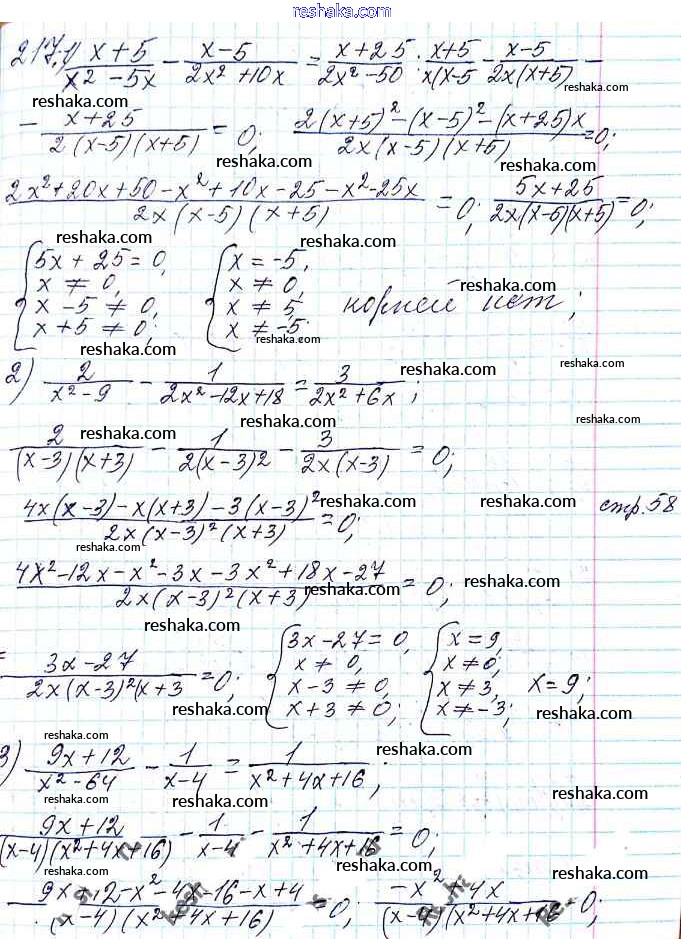 reshaka.com
217.1) (x+5)/(x²-5x) - (x-5)/(2x²+10x) = (x+25)/(2x²-50); (x+5)/(x(x-5) - (x-5)/(2x(x+5)) -
reshaka.com
- (x+25)/(2(x-5)(x+5)) = 0; (2(x+5)²-(x-5)²-(x+25)x)/(2x(x-5)(x+5)) = 0;
reshaka.com reshaka.com
(2x²+20x+50-x²+10x-25-x²-25x)/(2x(x-5)(x+5)) = 0; (5x+25)/(2x(x-5)(x+5)) = 0;
reshaka.com reshaka.com
{5x+25=0, {x=-5,
x≠0, x≠0,
x-5≠0, x≠5, корней нет;
x+5≠0; x≠-5;
reshaka.com reshaka.com reshaka.com
2) 2/(x²-9) - 1/(2x²-12x+18) = 3/(2x²+6x);
reshaka.com reshaka.com reshaka.com
2/((x-3)(x+3)) - 1/(2(x-3)²) - 3/(2x(x-3)) = 0;
reshaka.com reshaka.com reshaka.com
(4x(x-3)-x(x+3)-3(x-3)²)/(2x(x-3)²(x+3)) = 0; стр.58
reshaka.com reshaka.com reshaka.com
(4x²-12x-x²-3x-3x²+18x-27)/(2x(x-3)²(x+3)) = 0;
reshaka.com reshaka.com reshaka.com
= (3x-27)/(2x(x-3)²(x+3) = 0; {3x-27=0, {x=9,
x≠0, x≠0,
x-3≠0, x≠3, x=9;
x+3≠0; x≠-3;
reshaka.com reshaka.com reshaka.com
3) (9x+12)/(x²-64) - 1/(x-4) = 1/(x²+4x+16);
reshaka.com reshaka.com reshaka.com
(9x+12)/((x-4)(x²+4x+16)) - 1/(x-4) - 1/(x²+4x+16) = 0;
reshaka.com reshaka.com
(9x+12-x²-4x-16-x+4)/((x-4)(x²+4x+16)) = 0; (-x²+4x)/((x-4)(x²+4x+16 = 0;